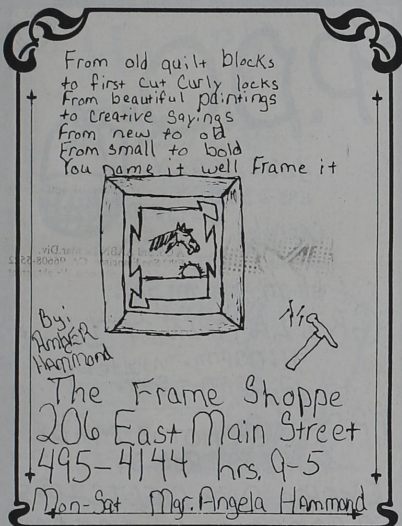 From old quilt blocks
to first cut Curly locks
From beautiful paintings
to creative Sayings
From new to old
From small to bold
You name it well Frame it
By:
AmbER
HAmmond
The Frame Shoppe
206 East Main Street
495-4144 hrs. 9-5
Mon-Sat Mgr. Angela HAmmond